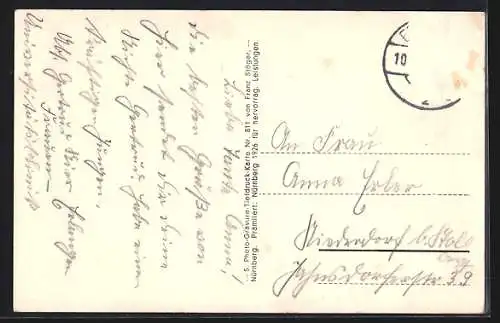 Liebe Tante Anna!
Die besten Grüße von
hier sendet Dir Deine
Nichte Gertrud. Habe einen
kräftigen Jungen.
Abs. Gertrud Erlangen
Frauen-
Universitätsklinik
S. Photo-Gravüre-Tiefdruck-Karte Nr. 811 von Franz Stöger,
Nürnberg. Prämiiert: Nürnberg 1926 für hervorrag. Leistungen.
10
An Frau
Anna Erler
Niederdorf b. Stoll
berg
Jahnsdorferstr 39